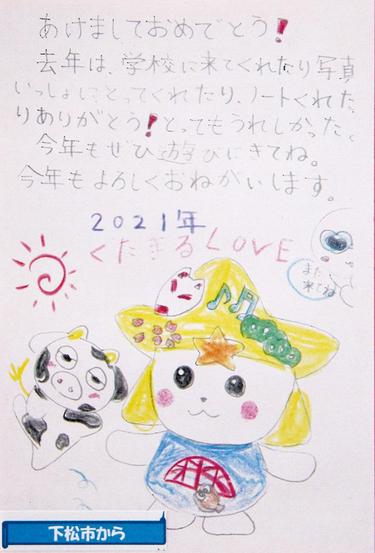 あけましておめでとう!
去年は、学校に来てくれたり写真
いっしょにとってくれたり、ノートくれた
りありがとう!とってもうれしかった。
今年もぜひ遊びにきてね。
今年もよろしくおねがいします。
2021年
くだまるLOVE
また
来てね
下松市から